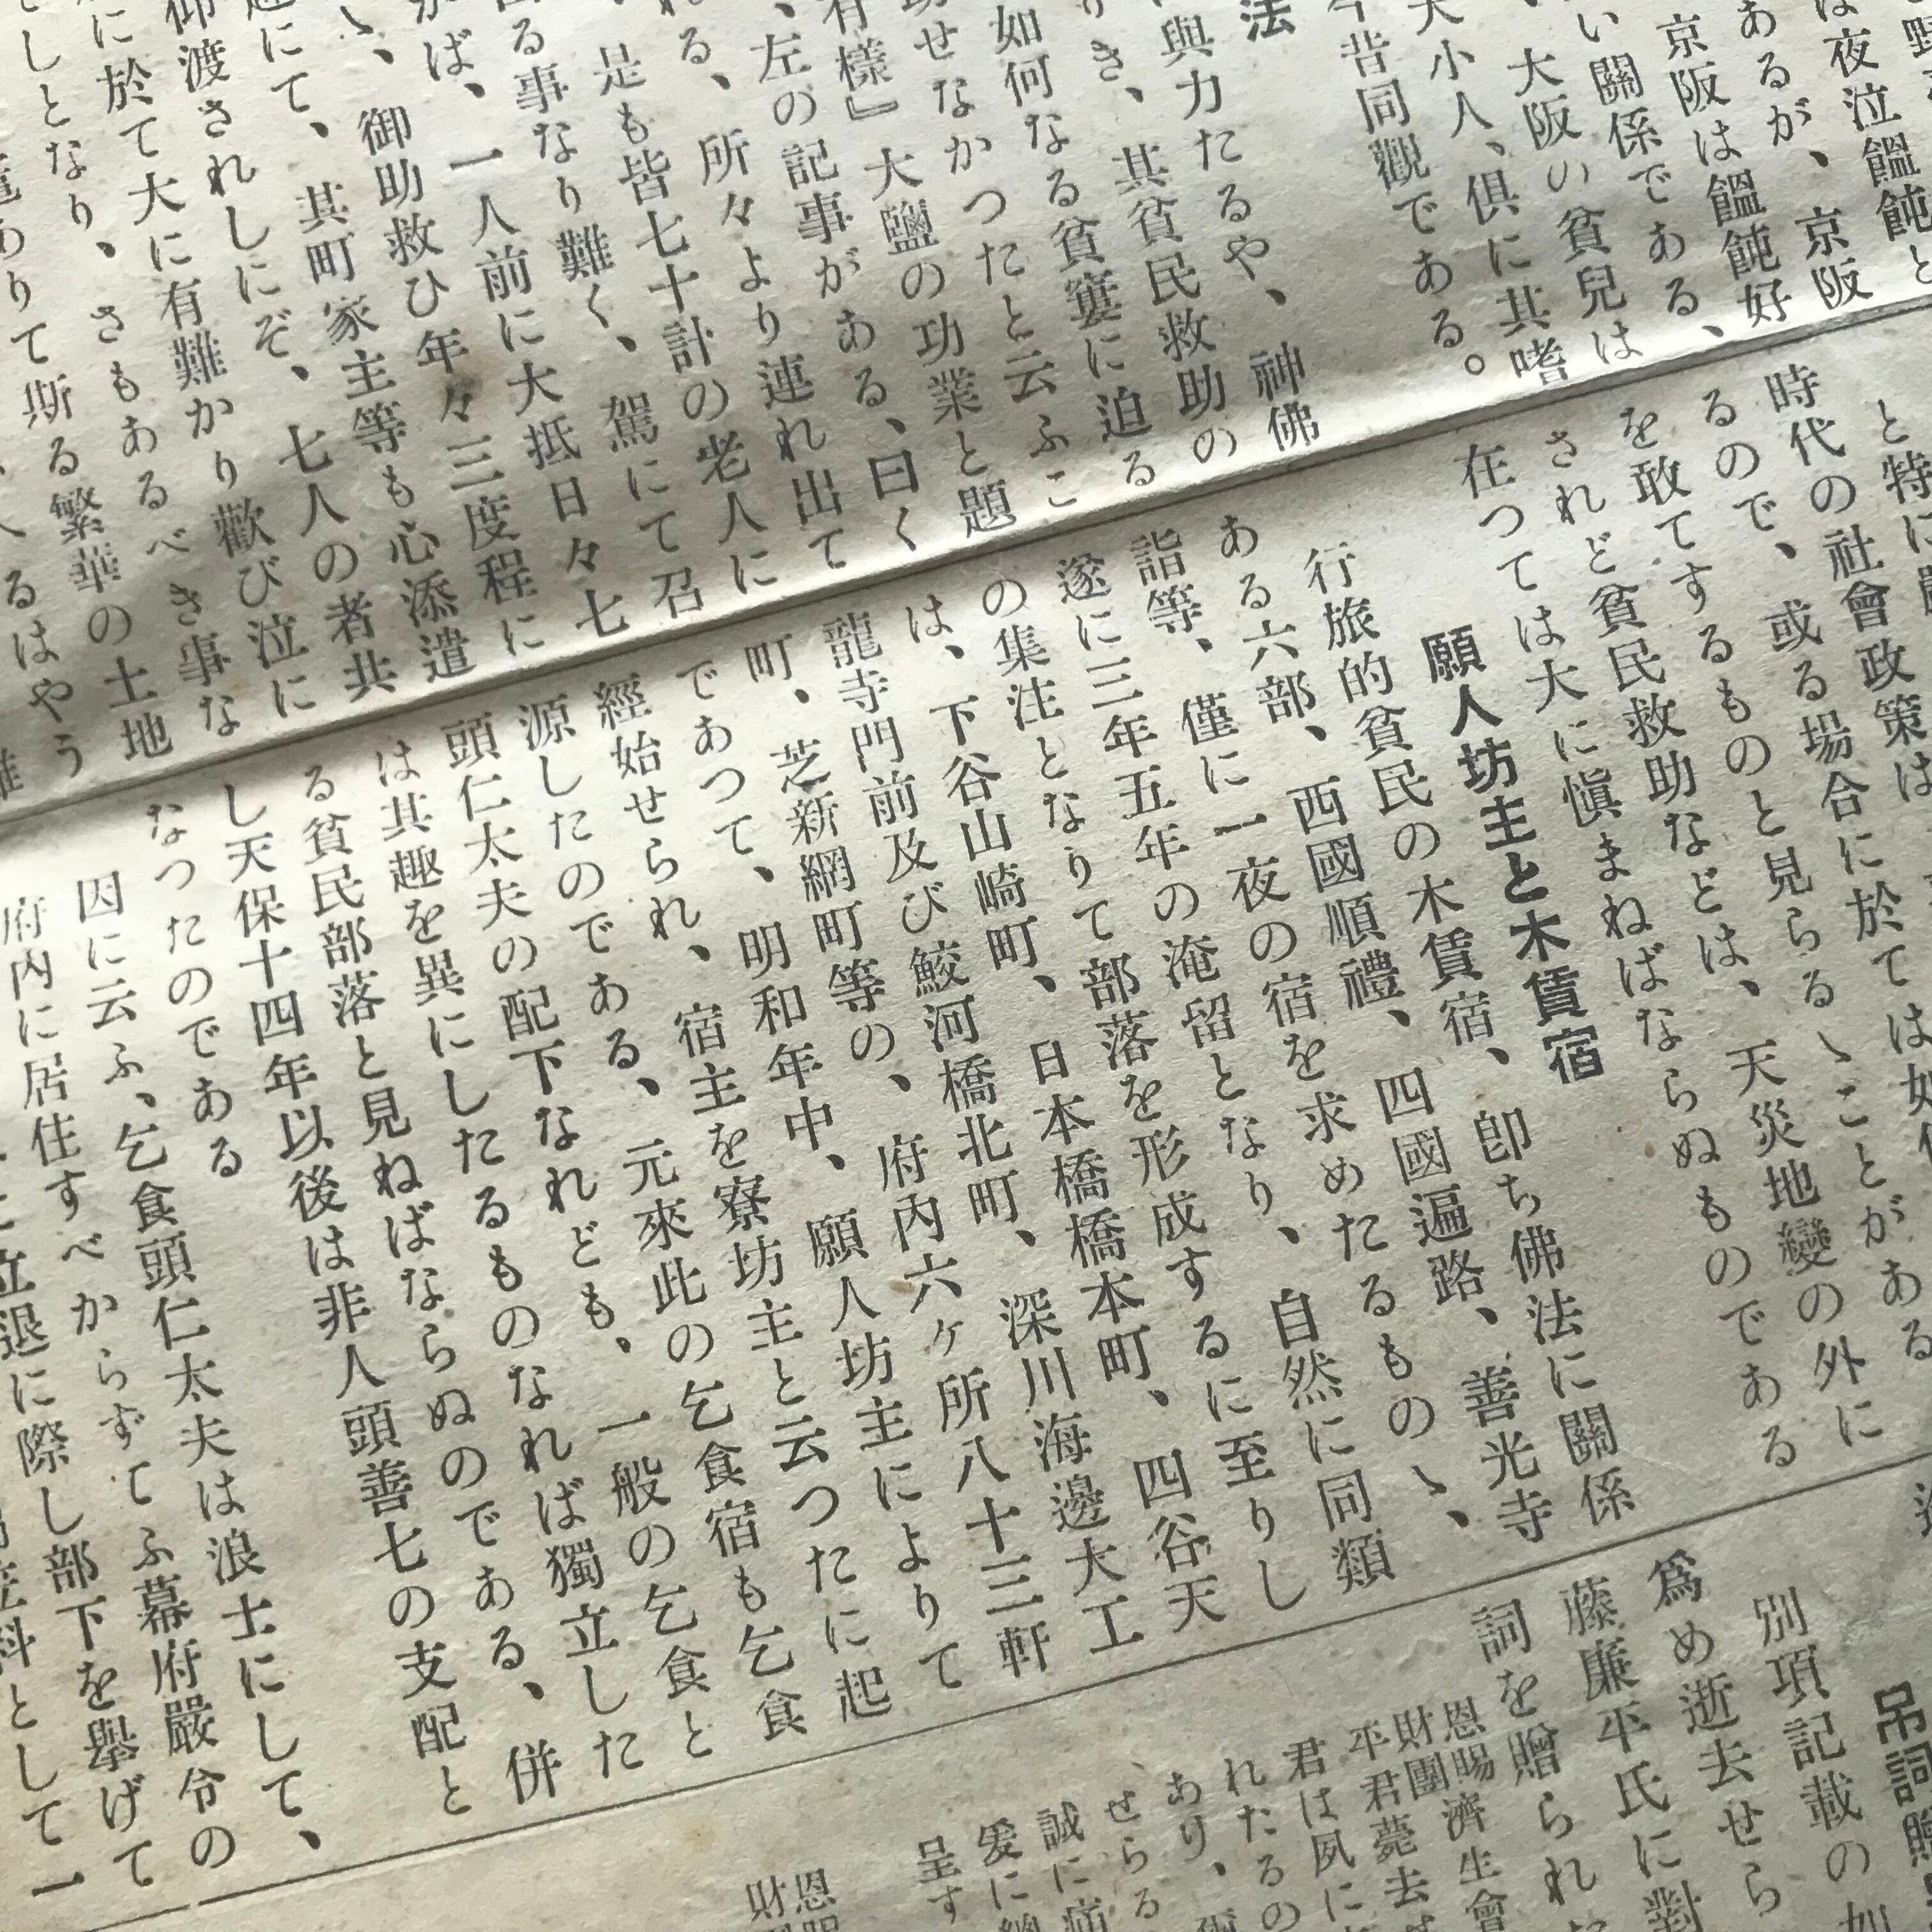 野
は夜泣饂飩と
あるが、京阪
京阪は饂飩好
い關係である、
、大阪の貧兒は
大小人、俱に其嗜
今昔同觀である。
法
與力たるや、神佛
りき、其貧民救助の
如何なる貧窶に迫る
功せなかつたと云ふこ
有樣』大鹽の功業と題
、左の記事がある、曰く
れる、所々より連れ出て
、是も皆七十計の老人に
出る事なり難く、駕にて召
かば、一人前に大抵日々七
ゝ、御助救ひ年々三度程に
にて、其町家主等も心添遣
仰渡されしにぞ、七人の者共
に於て大に有難かり歡び泣に
でしとなり、さもあるべき事な
ありて斯る繁華の土地
へるはやう
と特に
時代の社會政策は
るので、或る場合に於ては如
るものと見らるゝことがある
を敢てするものと見らるゝことがある
されど貧民救助などは、天災地變の外に
在つては大に愼まねばならぬものである
願人坊主と木賃宿
行旅的貧民の木賃宿、卽ち佛法に關係
ある六部、西國順禮、四國遍路、善光寺
詣等、僅に一夜の宿を求めたるものゝ、
遂に三年五年の淹留となり、自然に同類
の集注となりて部落を形成するに至りし
は、下谷山崎町、日本橋橋本町、四谷天
龍寺門前及び鮫河橋北町、深川海邊大工
町、芝新網町等の、府內六ヶ所八十三軒
であつて、明和年中、願人坊主によりて
經始せられ、宿主を寮坊主と云つたに起
源したのである、元來此の乞食宿も乞食
頭仁太夫の配下なれども、一般の乞食と
は其趣を異にしたるものなれば獨立した
る貧民部落と見ねばならぬのである、併
し天保十四年以後は非人頭善七の支配と
なつたのである
因に云ふ、乞食頭仁太夫は浪士にして、
府內に居住すべからずてふ幕府嚴令の
立退に際し部下を擧げて
料として一
吊詞贈
別項記載の如
爲め逝去せら
藤廉平氏に對
詞を贈られ
恩賜財團濟生會
平君薨去
君は夙に
れたるの
あり、
せらる
誠に痛
爰に
呈す
恩賜
財團